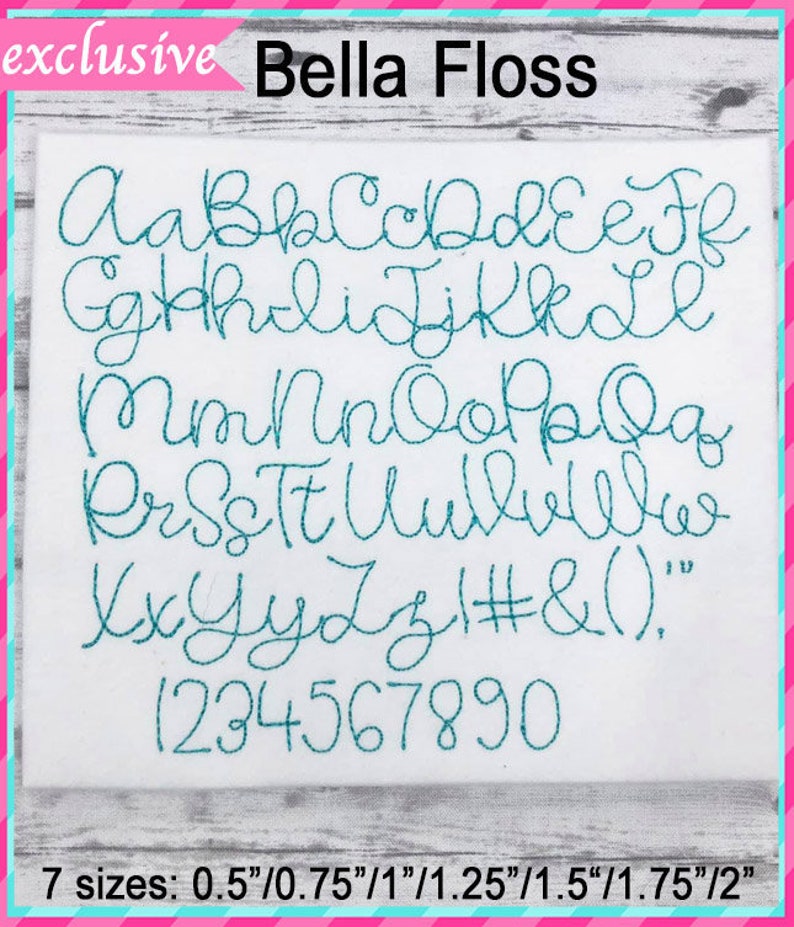 exclusive
Bella Floss
AaBbCcDdEeFf
GgHhIiJjKkLl
MmNnOoPpQq
RrSsTtUuVvWw
XxYyZz!#&().,'"
1234567890
7 sizes: 0.5”/0.75”/1”/1.25”/1.5“/1.75”/2”